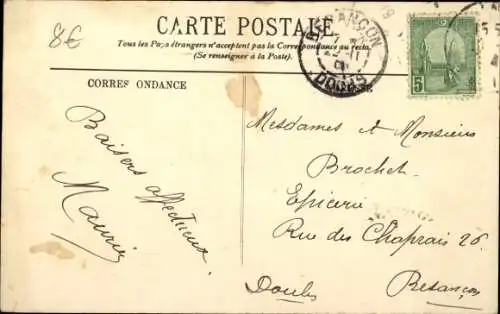 8€
CARTE POSTALE
Tous les Pays étrangers n'acceptent pas la Correspondance au recto.
(Se renseigner à la Poste).
BESANÇON
DOUBS
5
CORRES ONDANCE
Baisers affectueux
Maurice
Mesdames et Monsieur
Brochet
Epicerie
Rue des Chaprais 26
Doubs Besançon